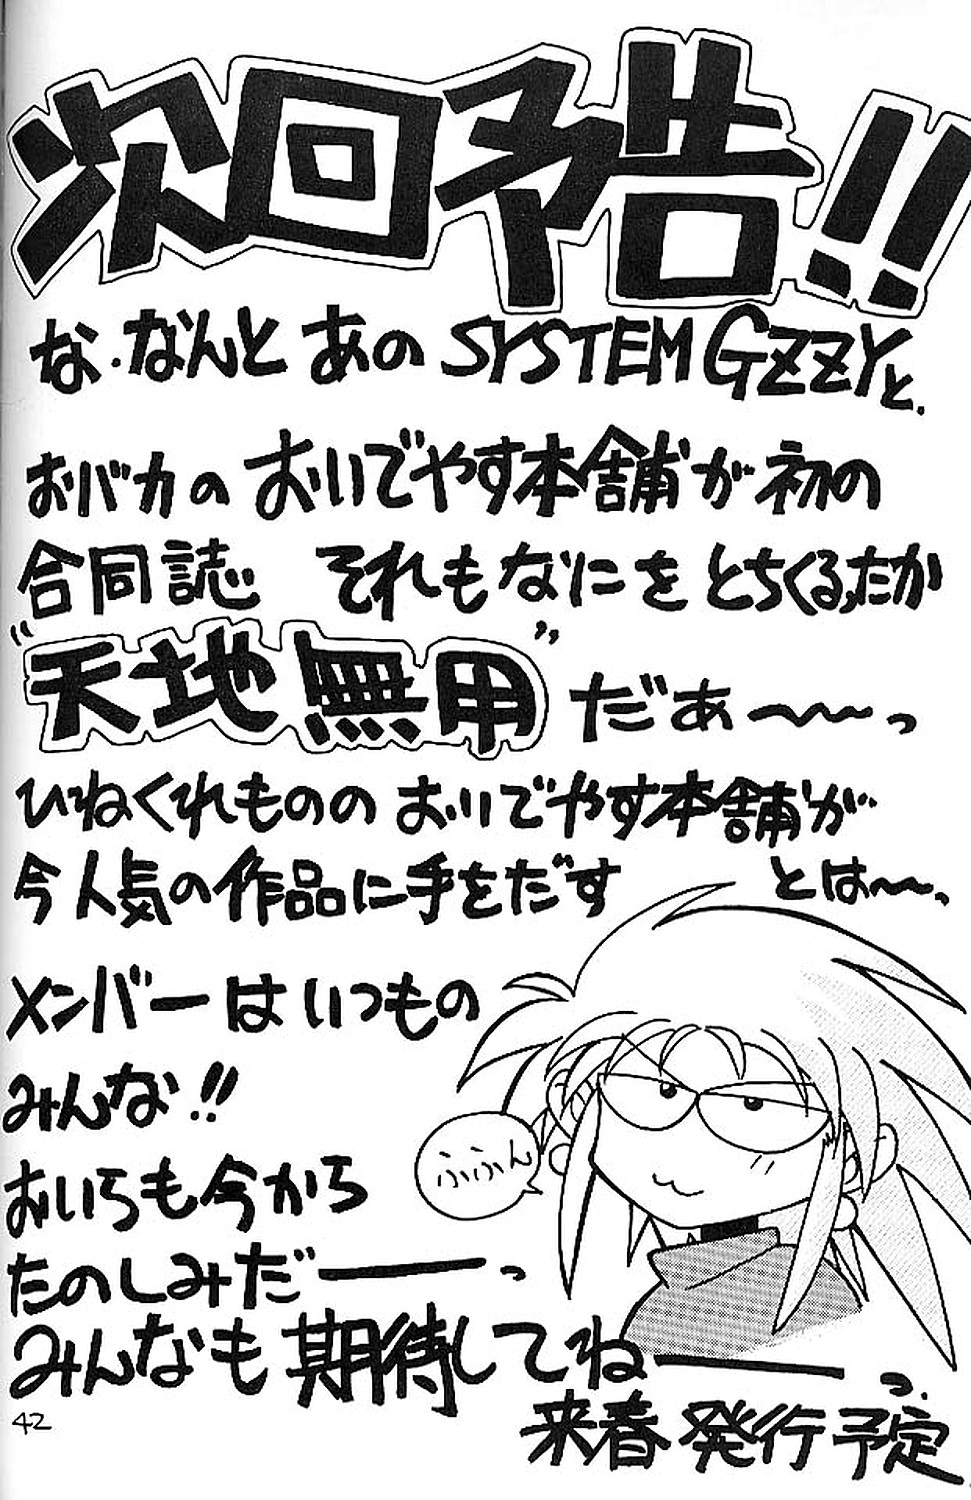 次回予告!!
な・なんと あの SYSTEM GZZYと、
おバカの おいでやす本舗が 初の
合同誌 それも なにを とちくるったか
"天地無用" だぁ〜〜っ
ひねくれものの おいでやす本舗が
今人気の作品に手をだす とは〜〜、
メンバーは いつもの
みんな!!
ふふん
おいらも今から
たのしみだ――っ
みんなも期待してね――っ.
来春 発行予定
42